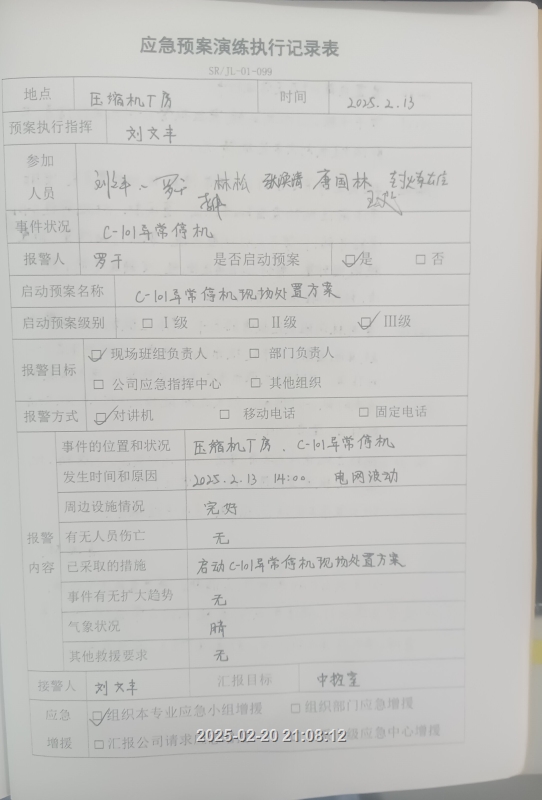 应急预案演练执行记录表
SR/JL-01-099
地点 压缩机厂房 时间 2025.2.13
预案执行指挥 刘文丰
参加人员 林松 唐国林
事件状况 C-101异常停机
报警人 罗干 是否启动预案 ☑是 □否
启动预案名称 C-101异常停机现场处置方案
启动预案级别 □Ⅰ级 □Ⅱ级 ☑Ⅲ级
报警目标 ☑现场班组负责人 □部门负责人
□公司应急指挥中心 □其他组织
报警方式 ☑对讲机 □移动电话 □固定电话
报警内容
事件的位置和状况 压缩机厂房、C-101异常停机
发生时间和原因 2025.2.13 14:00 电网波动
周边设施情况 完好
有无人员伤亡 无
已采取的措施 启动C-101异常停机现场处置方案
事件有无扩大趋势 无
气象状况 晴
其他救援要求 无
接警人 刘文丰 汇报目标 中控室
应急增援 ☑组织本专业应急小组增援 □组织部门应急增援
□汇报公司请求 应急中心增援
2025-02-20 21:08:12